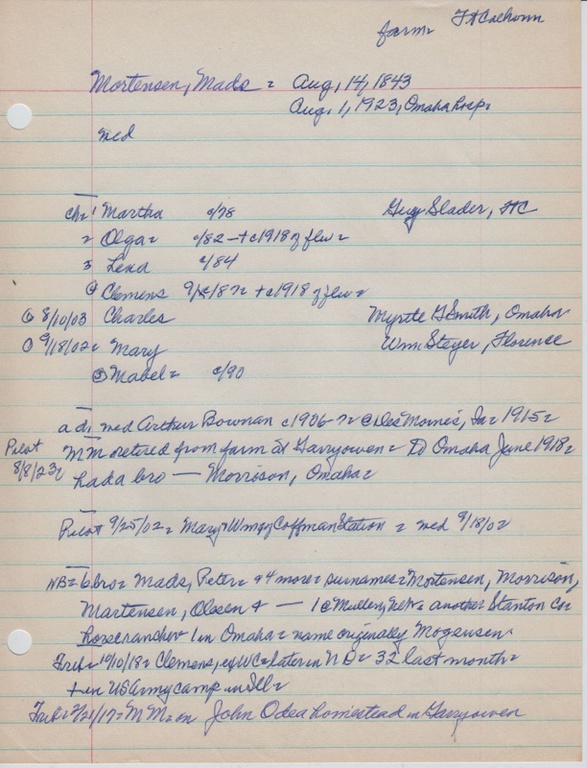 farm= Ft Calhoun
Mortensen, Mads = Aug, 14, 1843
Aug, 1, 1923, Omaha hosp=
wed
ch= 1 Martha c/78 Guy Slader, FtC
2 Olga= c/82 — + c1918 of flu=
3 Lena c/84
4 Clemens + c1918 of flu=
8/10/03 Charles Myrtle G Smith, Omaha
9/18/02= Mary Wm Steyer, Florence
Mabel= c/90
a d, wed Arthur Bowman c1906 @ Des Moines, Ia= 1915=
Pilot MM retired from farm at Garryowen= To Omaha June 1918=
8/8/23= had a bro — Morrison, Omaha=
Pilot 9/25/02= Mary + Wm Coffman Station = wed 9/18/02
NB= 6 bro= Mads, Peter= + 4 more= surnames= Mortensen, Morrison,
Martensen, Olesen + — 1 @ Mullen, Neb= another Stanton Co=
1 in Omaha= name originally Mogensen=
Trib= 10/10/18= Clemens, of WC= later in ND= 32 last month=
+ in US Army camp in Ill=
Trib= 2/21/17= MM= on John Odea homestead in Garryowen